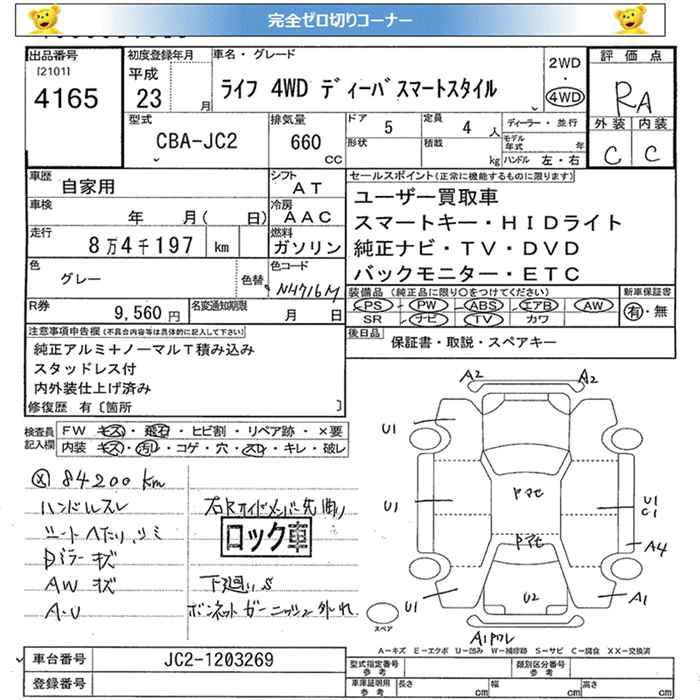 完全ゼロ切りコーナー
出品番号
[2101]
4165
初度登録年月
平成
23 月
車名・グレード
ライフ 4WD ディーバスマートスタイル
2WD
・
4WD
評価点
RA
外装 内装
C C
型式
CBA-JC2
排気量
660
CC
ドア 5
定員 4 人
形状
積載 kg
ディーラー・並行
モデル年式 年
ハンドル 左・右
車歴
自家用
シフト
AT
車検
年 月( 日)
冷房
AAC
走行
8万4千197 km
燃料
ガソリン
色
グレー
色替
色コード
NH716M
R券
9,560 円
名変通知期限
月 日
セールスポイント(正常に機能するものに限ります)
ユーザー買取車
スマートキー・HIDライト
純正ナビ・TV・DVD
バックモニター・ETC
装備品 (純正品に限り○をつけてください)
PS PW ABS エアB AW
SR ナビ TV カワ
新車保証書
有・無
後日品
保証書・取説・スペアキー
注意事項申告欄(不具合内容等は具体的に記入して下さい)
純正アルミ+ノーマルT積み込み
スタッドレス付
内外装仕上げ済み
修復歴 有〔箇所 〕
検査員
記入欄
FW キズ・飛石・ヒビ割・リペア跡・×要
内装 キズ・汚れ・コゲ・穴・スレ・キレ・破レ
84200km
ハンドルスレ
シートへたり、シミ
Dミラーキズ
AWキズ
A・U
ロック車
下廻りS
ボンネットガーニッシュ外れ
A2 A2
U1
U1
U1
C1
A4
U1
U2
A1
A1ワレ
スペア
A-キズ E-エクボ U-凹み W-補修跡 S-サビ C-腐食 XX-交換済
車台番号
JC2-1203269
登録番号
型式指定番号
参考
類別区分番号
参考
車庫証明用
参考
長さ cm
幅 cm
高さ cm